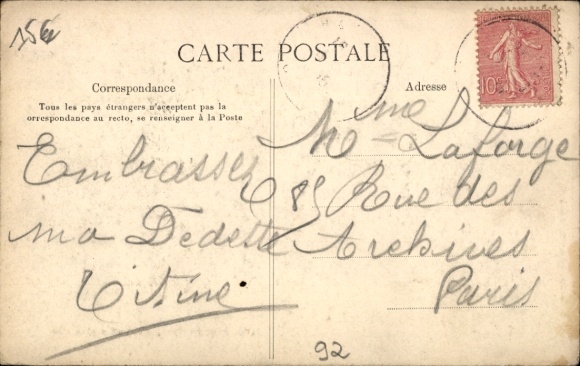 156
CARTE POSTALE
Correspondance
Tous les pays étrangers n'acceptent pas la
correspondance au recto, se renseigner à la Poste
Embrassez
ma Dedette
Titine
Adresse
10c
Mme Laforge
85 Rue des
Archives
Paris
92